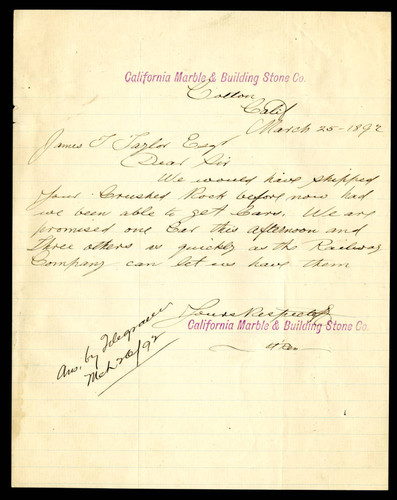 California Marble & Building Stone Co.
Colton
Calif
March 25-1892
James T Taylor Esqr
Dear Sir
We would have shipped
your Crushed Rock before now had
we been able to get Cars. We are
promised one Car this afternoon and
Three others as quickly as the Railway
Company can let us have them
Yours Respectfly
California Marble & Building Stone Co.
Ans. by Telegram
Mch 26/92